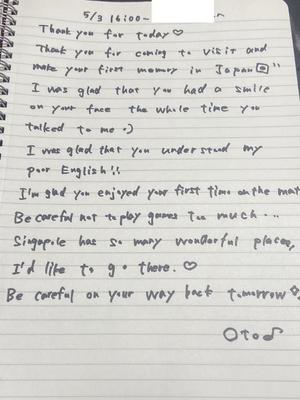 5/3 16:00~
Thank you for today♡
Thank you for coming to visit and
make your first memory in Japan🇯🇵"
I was glad that you had a smile
on your face the whole time you
talked to me :)
I was glad that you understand my
poor English!!
I'm glad you enjoyed your first time on the mat
Be careful not to play games too much...
Singapole has so many wonderful places,
I'd like to go there.♡
Be careful on your way back tomorrow
Oto♪